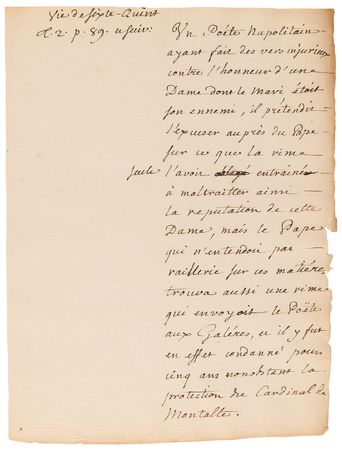 Vie de Sixte-Quint
t. 2. p. 89. & suiv:
Un Poéte Napolitain
ayant fait des vers injurieux
contre l'honneur d'une
Dame dont le Mari étoit
son ennemi, il prétendit
l'éxcuser auprès du Pape
sur ce que la rime
seule l'avoir entrainé
à maltraitter ainsi
la reputation de cette
Dame, mais le Pape
qui n'entendoit pas
raillerie sur ces matiéres
trouva aussi une rime
qui envoyoit le Poëte
aux Galéres, et il y fut
en effet condanné pour
cinq ans nonobstant la
protection du Cardinal de
Montalte.